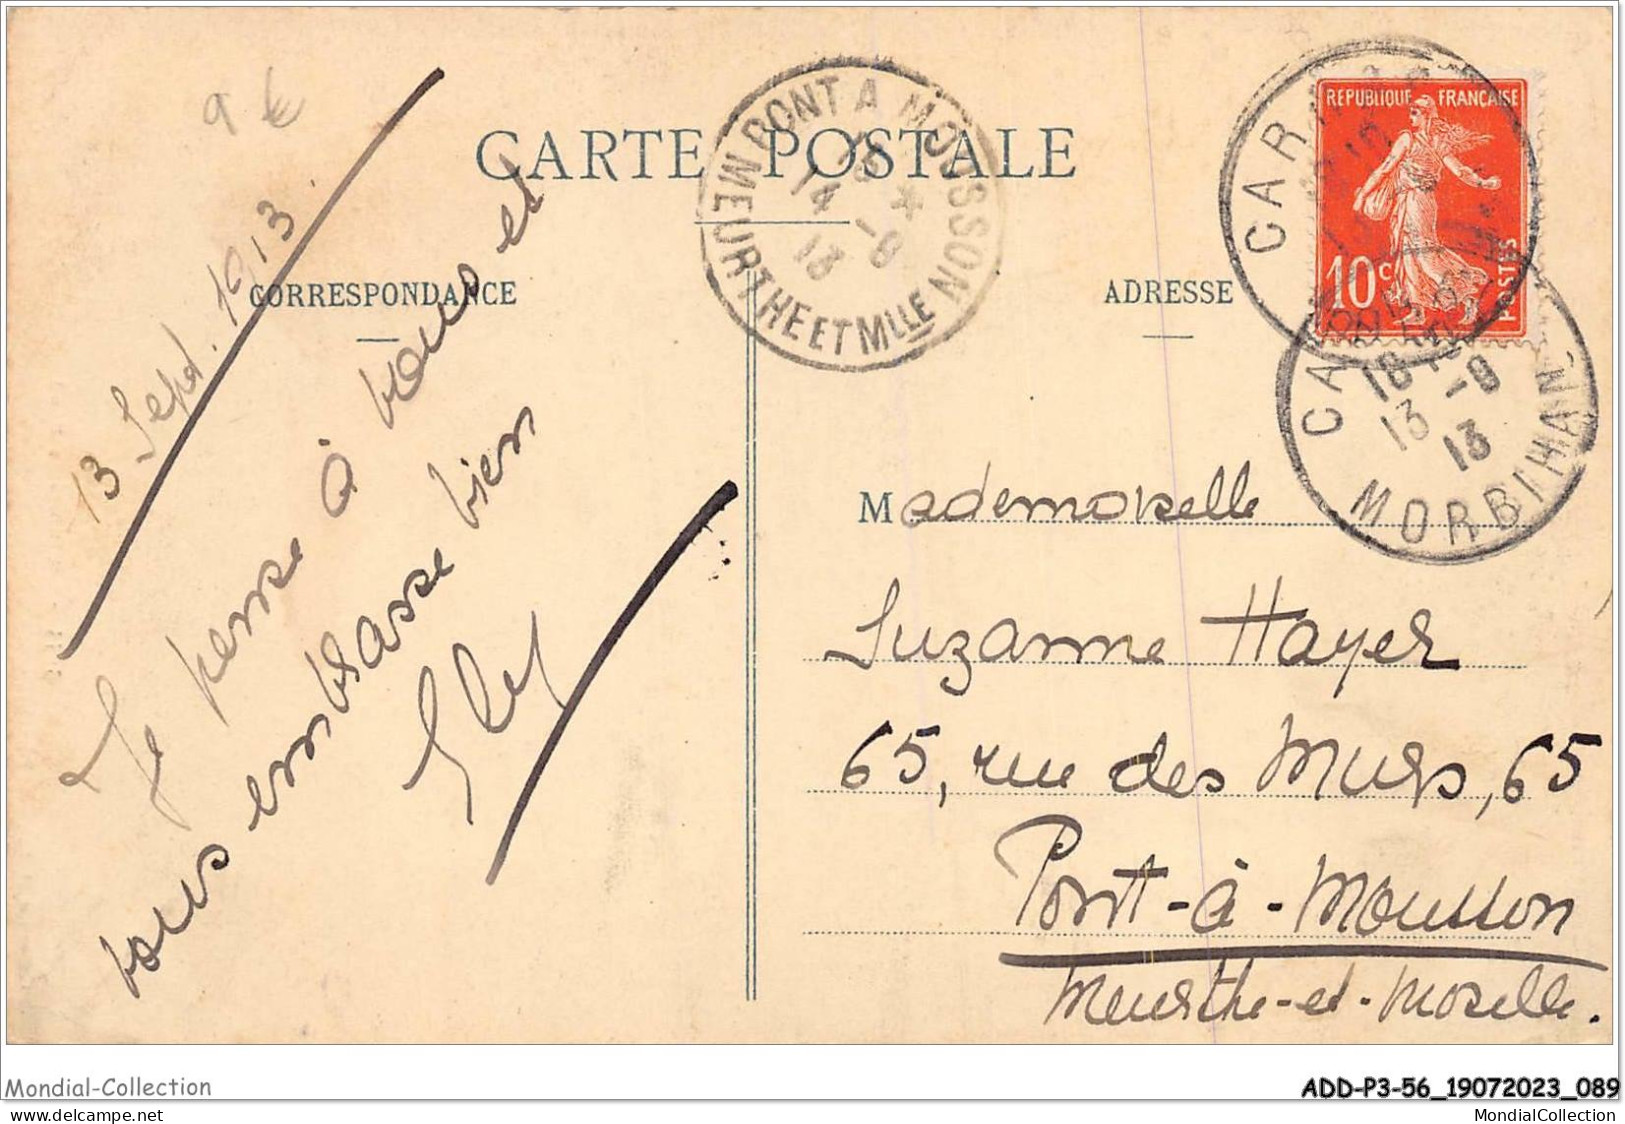 9 €
CARTE POSTALE
CORRESPONDANCE
ADRESSE
13 Sept. 1913.
Je pense à vous et
vous embrasse bien
PONT A MOUSSON
MEURTHE ET Mlle
18 *
14 -9
13
REPUBLIQUE FRANÇAISE
10c
POSTES
CAR
CA
18
13 -9
13
MORBIHAN
Mademoiselle
Suzanne Hayer
65, rue des Murs, 65
Pont-à-Mousson
Meurthe-et-Moselle.
Mondial-Collection
www.delcampe.net
ADD-P3-56_19072023_089
MondialCollection